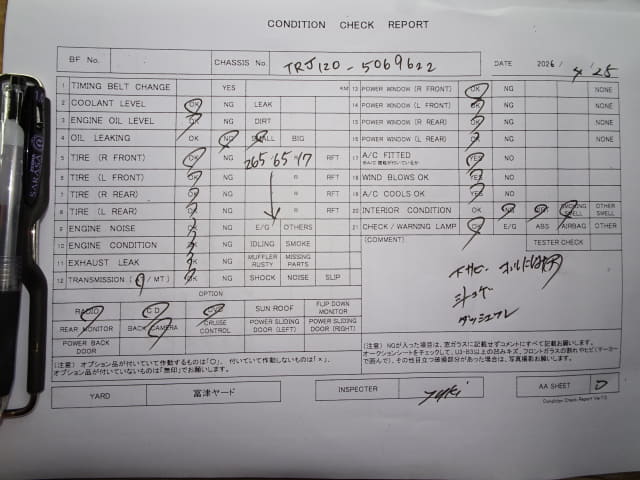 CONDITION CHECK REPORT
BF No. CHASSIS No. TRJ120-5069622 DATE 2026/4/25
1 TIMING BELT CHANGE YES KM
2 COOLANT LEVEL OK NG LEAK
3 ENGINE OIL LEVEL OK NG DIRT
4 OIL LEAKING OK NG SMALL BIG
5 TIRE (R FRONT) OK NG 265・65・17 RFT
6 TIRE (L FRONT) OK NG R RFT
7 TIRE (R REAR) OK NG R RFT
8 TIRE (L REAR) OK NG R RFT
9 ENGINE NOISE OK NG E/G OTHERS
10 ENGINE CONDITION OK NG IDLING SMOKE
11 EXHAUST LEAK OK NG MUFFLER RUSTY MISSING PARTS
12 TRANSMISSION ( / MT) OK NG SHOCK NOISE SLIP
OPTION
RADIO CD SUN ROOF FLIP DOWN MONITOR
REAR MONITOR BACK CAMERA CRUISE CONTROL POWER SLIDING DOOR (LEFT) POWER SLIDING DOOR (RIGHT)
POWER BACK DOOR
(注意) オプション品が付いていて作動するものは「○」、付いていて作動しないものは「×」、
オプション品が付いていないものは「無印」でお願いします。
13 POWER WINDOW (R FRONT) OK NG NONE
14 POWER WINDOW (L FRONT) OK NG NONE
15 POWER WINDOW (R REAR) OK NG NONE
16 POWER WINDOW (L REAR) OK NG NONE
17 A/C FITTED YES NO
18 WIND BLOWS OK YES NO
19 A/C COOLS OK YES NO
20 INTERIOR CONDITION OK NG DIRT SMOKING SMELL OTHER SMELL
21 CHECK/WARNING LAMP OK E/G ABS AIRBAG OTHER
(COMMENT) TESTER CHECK
(注意) NGが入った場合は、窓ガラスに記載せずコメントにすべて記載お願いします。
オークションシートをチェックして、U3-B3以上の凹みキズ、フロントガラスの割れやヒビ(テーカー
で囲んで)、その他目立つ破損部分があった場合は、写真撮影お願いします。
YARD 富津ヤード INSPECTER AA SHEET
Condition Check Report Ver.7.0
SARASA